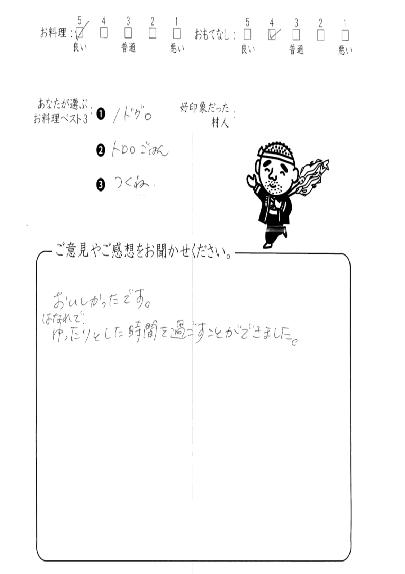 お料理: 5 4 3 2 1 おもてなし: 5 4 3 2 1
良い 普通 悪い 良い 普通 悪い
あなたが選ぶ お料理ベスト3: ❶ ノドグロ
❷ トロロごはん
❸ つくね
好印象だった 村人:
ご意見やご感想をお聞かせください。
おいしかったです。
はなれで
ゆったりとした時間を過ごすことができました。